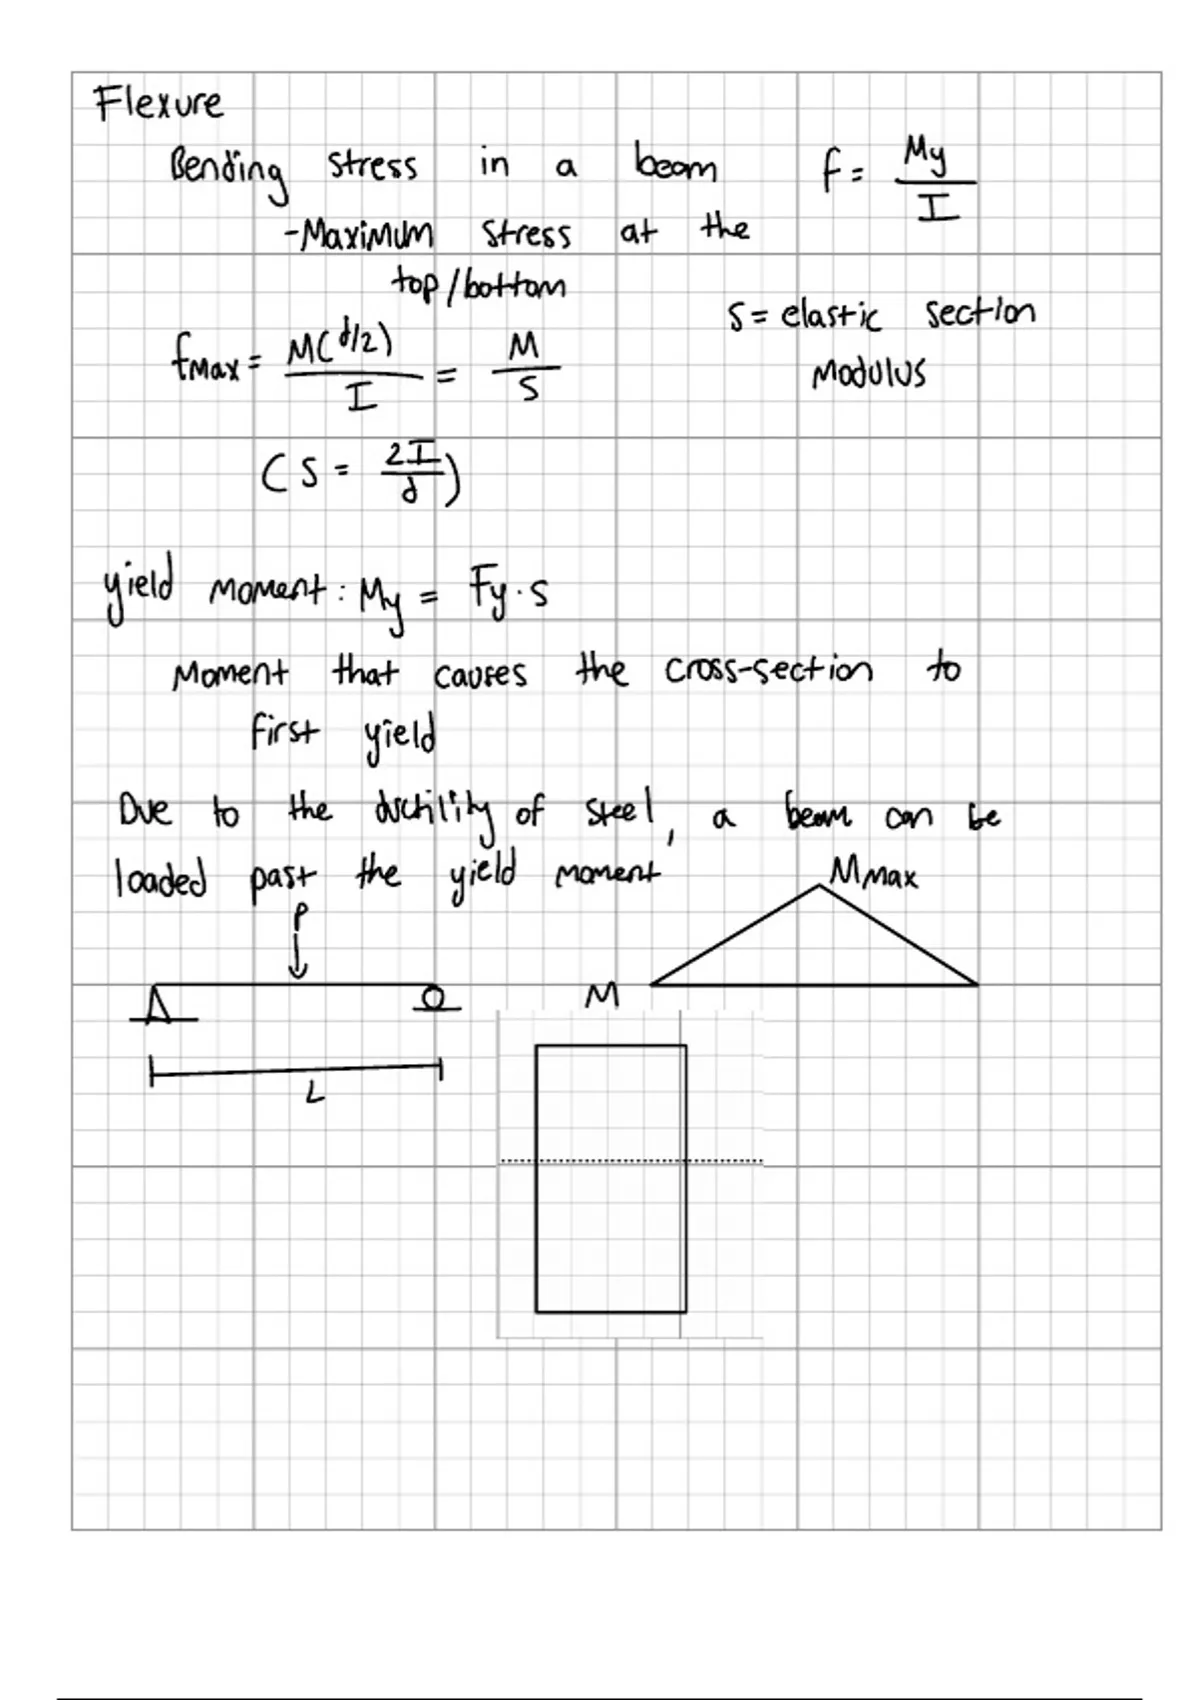 Flexure
Bending stress in a beam f = My/I
-Maximum stress at the
top/bottom
S = elastic section
modulus
fmax = M(d/2)/I = M/S
(S = 2I/d)
yield moment: My = Fy·s
Moment that causes the cross-section to
first yield
Due to the ductility of steel, a beam can be
loaded past the yield moment
Mmax
P
M
L